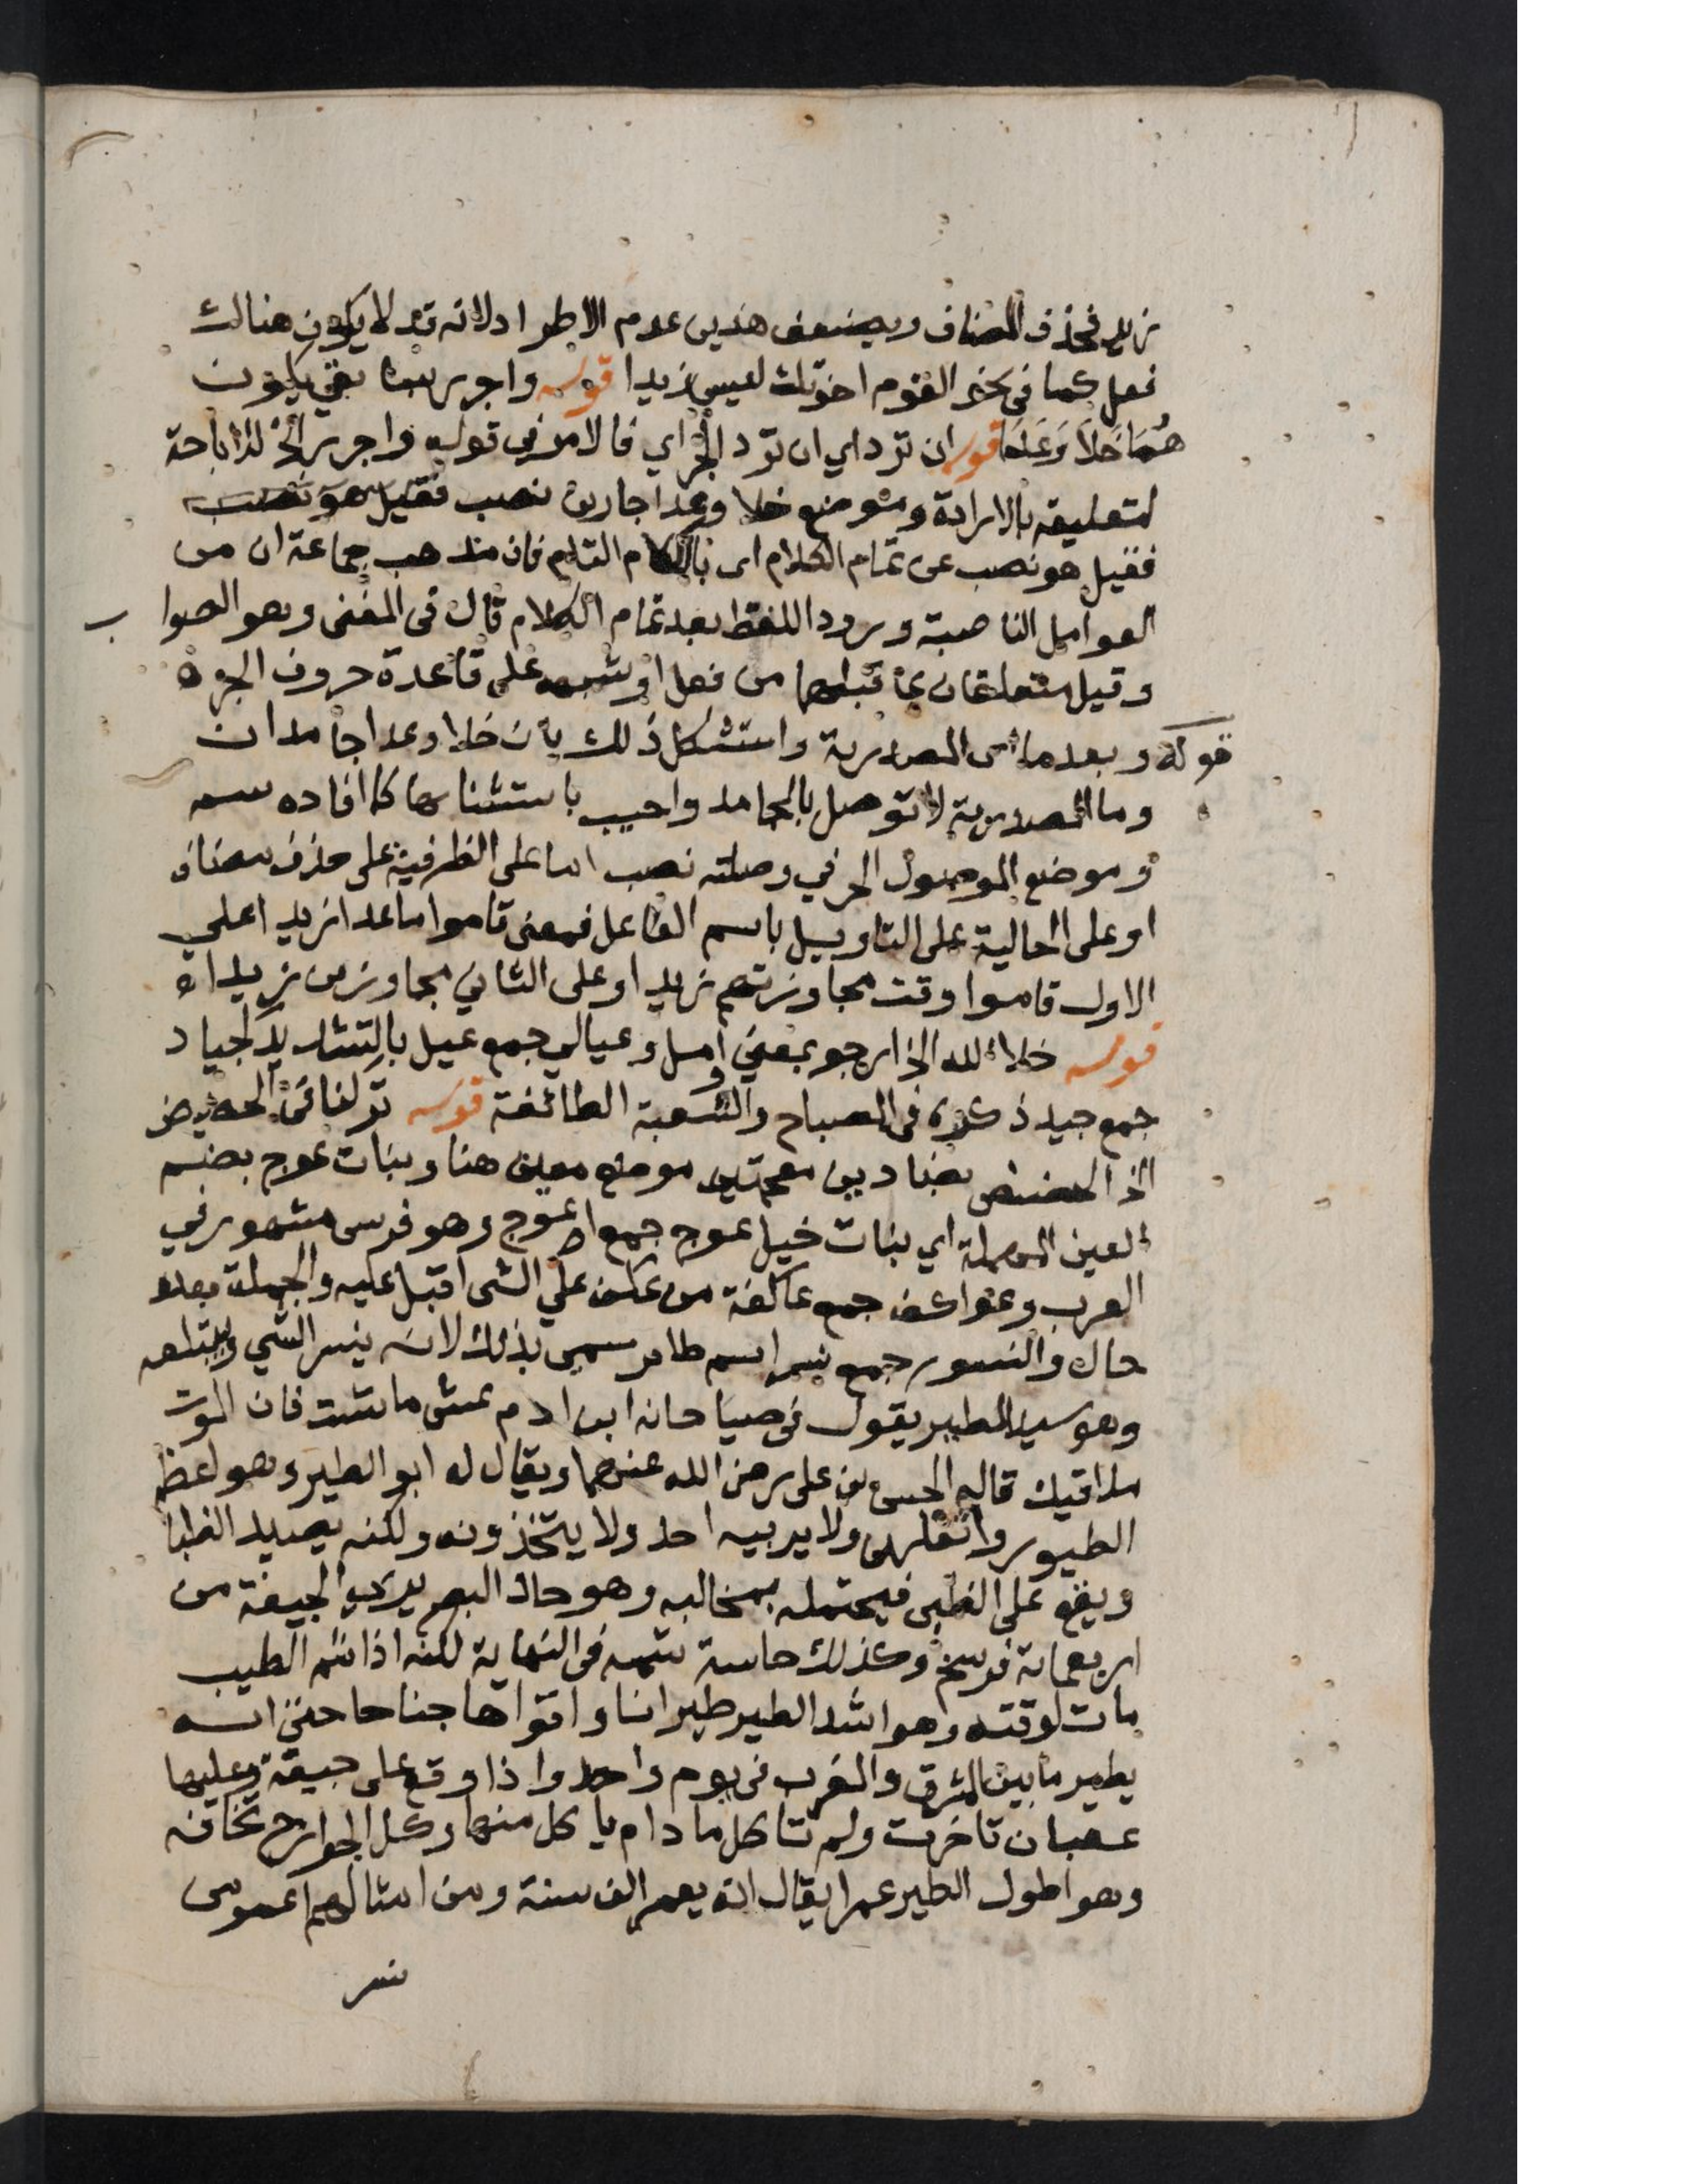 زيد فحذف المضاف ويضعف هذين عدم الاطراد لانه قد لا يكون هنالك
فعل كما في نحو القوم اخوتك ليس زيدا قوله واجرر بسابقي يكون
هُمَا خَلاَ وَعَدَا قوله ان ترد اي ان ترد الجر اي فالامر في قوله واجرر الخ للاباحة
لتعليقه بالارادة وموضع خلا وعدا جارين نصب فقيل هو نصب
فقيل هو نصب عن تمام الكلام اي بالكلام التام فان مذهب جماعة ان من
العوامل الناصبة ورود اللفظ بعد تمام الكلام قال في المغنى وهو الصواب
وقيل متعلقان بما قبلهما من فعل او شبهه على قاعدة حروف الجر ه
قوله وبعد ما اي المصدرية واستشكل ذلك بان خلا وعدا جامدان
وما المصدرية لا توصل بالجامد واجيب باستثنائهما كما افاده سم
وموضع الموصول الحرفي وصلته نصب اما على الظرفية على حذف مضاف
او على الحالية على التاويل باسم الفاعل فمعنى قاموا ما عدا زيدا على
الاول قاموا وقت مجاوزتهم زيدا وعلى الثاني مجاوزين زيدا ه
قوله خلا الله الخ ارجو بمعنى أمل وعيالي جمع عيل بالتشديد كجياد
جمع جيد ذكره في المصباح والشعبة الطائفة قوله تركنا في الحضيض
الخ الحضيض بضادين معجمتين موضع معين هنا وبنات عوج بضم
العين المهملة اي بنات خيل عوج جمع اعوج وهو فرس مشهور في
العرب وعواكف جمع عاكفة من عكف على الشي اقبل عليه والجملة بعده
حال والنسور جمع نسر اسم طائر سمي بذلك لانه ينسر الشي ويبتلعه
وهو سيد الطير يقول في صياحانه ابن ادم عش ما شئت فان الموت
ملاقيك قاله الحسن بن على رضى الله عنهما ويقال له ابو الطير وهو اعظم
الطيور واثقلها ولا يربيه احد ولا يتخذونه ولكنه يصيد الظبا
ويقع على الظبى فيحتمله بمخالبه وهو حاد البصر يرى الجيفة من
اربعماية فرسخ وكذلك حاسة شمه في النهاية لكنه اذا شم الطيب
مات لوقته وهو اشد الطير طيرانا واقواها جناحا حتى انه
يطير ما بين المشرق والمغرب في يوم واحد واذا وقع على جيفة وعليها
عقبان تاخرت ولم تاكل ما دام ياكل منها وكل الجوارح تخافه
وهو اطول الطير عمرا يقال انه يعمر الف سنة ومن امثالهم اعمر من
نسر